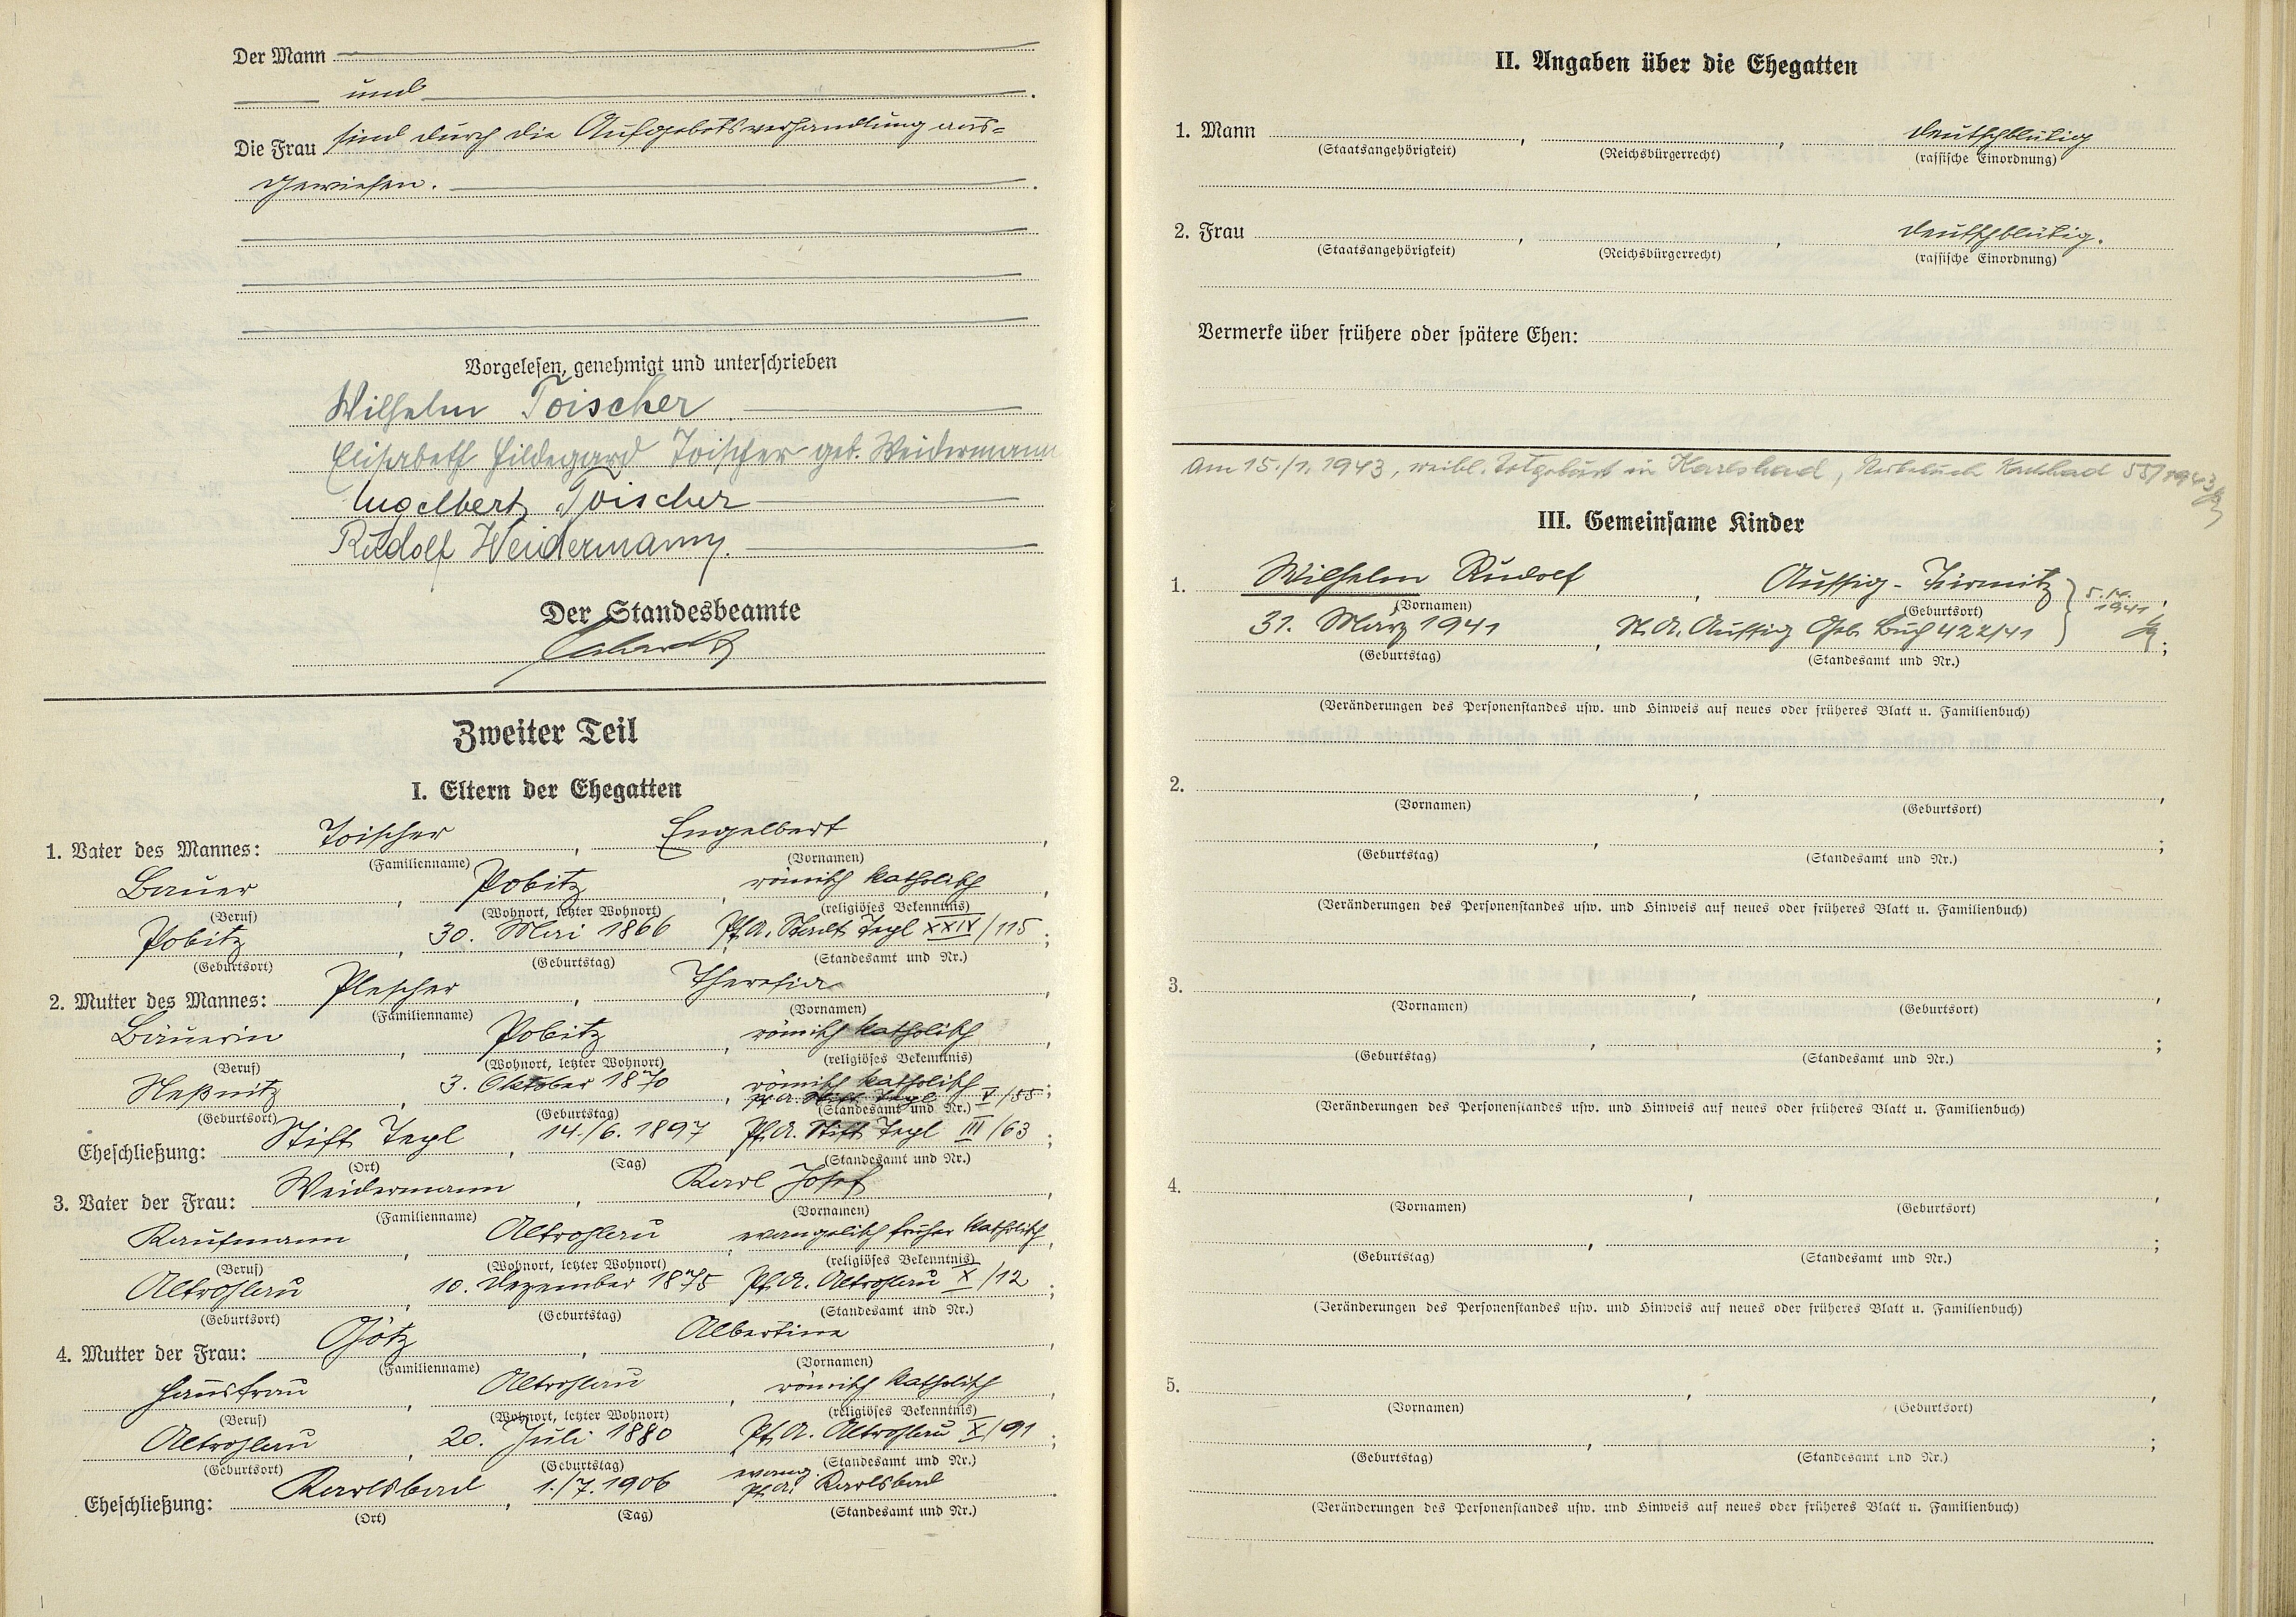 Der Mann
und
Die Frau sind durch die Aufgebotsverhandlung aus=
gewiesen.
Vorgelesen, genehmigt und unterschrieben
Wilhelm Toischer
Elisabeth Hildegard Toischer geb. Weidermann
Engelbert Toischer
Rudolf Weidermann.
Der Standesbeamte
Zweiter Teil
I. Eltern der Ehegatten
1. Vater des Mannes: Toischer, Engelbert,
(Familienname) (Vornamen)
Bauer, Pobitz, römisch katholisch,
(Beruf) (Wohnort, letzter Wohnort) (religiöses Bekenntnis)
Pobitz, 30. Mai 1866 Pf.A. Stadt Tepl XXIV/115;
(Geburtsort) (Geburtstag) (Standesamt und Nr.)
2. Mutter des Mannes: Plescher, Theresia,
(Familienname) (Vornamen)
Bäuerin, Pobitz, römisch katholisch,
(Beruf) (Wohnort, letzter Wohnort) (religiöses Bekenntnis)
römisch katholisch
Neßnitz, 3. Oktober 1870, Pf.A. Stift Tepl V/55;
(Geburtsort) (Geburtstag) (Standesamt und Nr.)
Eheschließung: Stift Tepl, 14./6. 1897 Pf.A. Stift Tepl III/63;
(Ort) (Tag) (Standesamt und Nr.)
3. Vater der Frau: Weidermann, Karl Josef,
(Familienname) (Vornamen)
Kaufmann, Altrohlau, evangelisch früher katholisch,
(Beruf) (Wohnort, letzter Wohnort) (religiöses Bekenntnis)
Altrohlau, 10. Dezember 1875 Pf.A. Altrohlau X/12;
(Geburtsort) (Geburtstag) (Standesamt und Nr.)
4. Mutter der Frau: Götz, Albertine,
(Familienname) (Vornamen)
Hausfrau, Altrohlau, römisch katholisch,
(Beruf) (Wohnort, letzter Wohnort) (religiöses Bekenntnis)
Altrohlau, 20. Juli 1880 Pf.A. Altrohlau X/91;
(Geburtsort) (Geburtstag) (Standesamt und Nr.)
evang.
Eheschließung: Karlsbad, 1./7. 1906 Pf.A. Karlsbad.
(Ort) (Tag) (Standesamt und Nr.)
II. Angaben über die Ehegatten
1. Mann, , deutschblütig
(Staatsangehörigkeit) (Reichsbürgerrecht) (rassische Einordnung)
2. Frau, , deutschblütig.
(Staatsangehörigkeit) (Reichsbürgerrecht) (rassische Einordnung)
Vermerke über frühere oder spätere Ehen:
Am 15./1. 1943, weibl. Totgeburt in Karlsbad, Sterbebuch Karlsbad 55/1943
III. Gemeinsame Kinder
1. Wilhelm Rudolf, Aussig-Türmitz,
(Vornamen) (Geburtsort)
31. März 1941, St. A. Aussig Geb. Buch 422/41;
(Geburtstag) (Standesamt und Nr.)
(Veränderungen des Personenstandes usw. und Hinweis auf neues oder früheres Blatt u. Familienbuch)
2. , ,
(Vornamen) (Geburtsort)
, ;
(Geburtstag) (Standesamt und Nr.)
(Veränderungen des Personenstandes usw. und Hinweis auf neues oder früheres Blatt u. Familienbuch)
3. , ,
(Vornamen) (Geburtsort)
, ;
(Geburtstag) (Standesamt und Nr.)
(Veränderungen des Personenstandes usw. und Hinweis auf neues oder früheres Blatt u. Familienbuch)
4. , ,
(Vornamen) (Geburtsort)
, ;
(Geburtstag) (Standesamt und Nr.)
(Veränderungen des Personenstandes usw. und Hinweis auf neues oder früheres Blatt u. Familienbuch)
5. , ,
(Vornamen) (Geburtsort)
, ;
(Geburtstag) (Standesamt und Nr.)
(Veränderungen des Personenstandes usw. und Hinweis auf neues oder früheres Blatt u. Familienbuch)